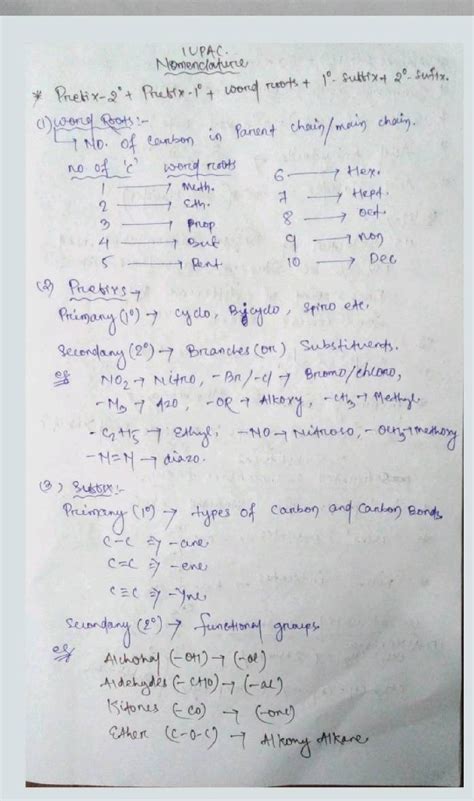 IUPAC.
Nomenclature
* Prefix-2° + Prefix-1° + word roots + 1°-Suffix + 2°-Suffix.
(1) Word Roots:-
→ No. of carbon in Parent chain/main chain.
no of 'c' word roots
1 → Meth.
2 → Eth.
3 → Prop
4 → But
5 → Pent
6 → Hex.
7 → Hept.
8 → Oct.
9 → Non
10 → Dec
(2) Prefixs →
Primary (1°) → Cyclo, Bicyclo, Spiro etc.
Secondary (2°) → Branches (or) Substituents.
eg NO2 → Nitro, -Br/-Cl → Bromo/chloro,
-N3 → Azo, -OR → Alkoxy, -CH3 → Methyl.
-C2H5 → Ethyl, -NO → Nitroso, -OCH3 → Methoxy
-N=N → diazo.
(3) Suffix:-
Primary (1°) → types of Carbon and Carbon Bonds
C-C ⇒ -ane
C=C ⇒ -ene
C≡C ⇒ -Yne
Secondary (2°) → functional groups
eg Alchohal (-OH) → (-ol)
Aldehydes (-CHO) → (-al)
Kitones (-CO) → (-one)
Ether (C-O-C) → Alkony Alkane